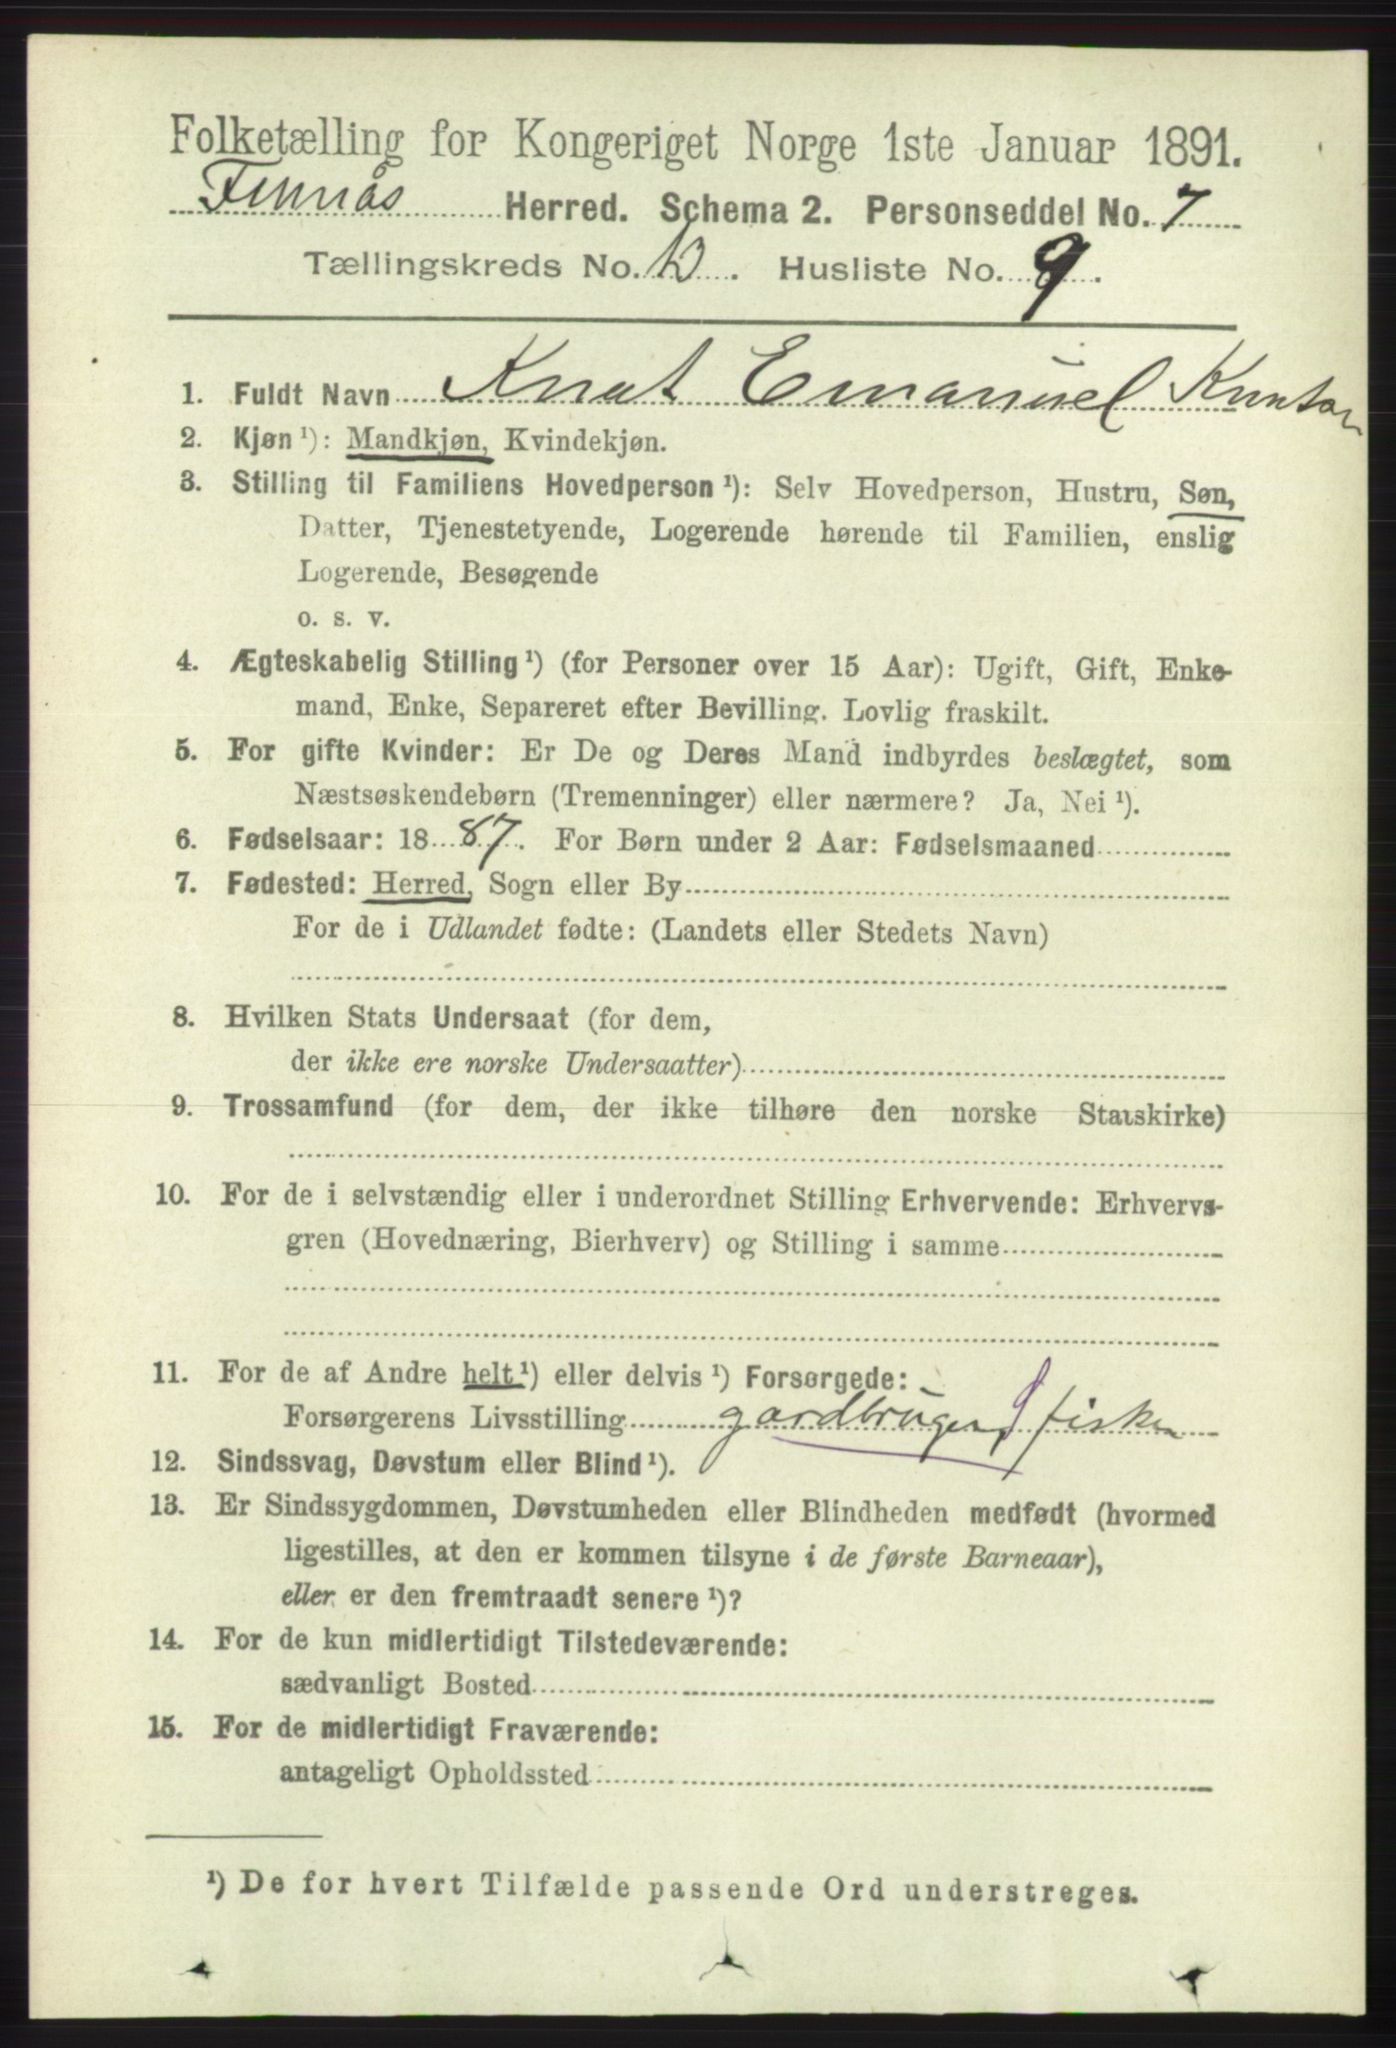 Folketælling for Kongeriget Norge 1ste Januar 1891.
Finnås Herred. Schema 2. Personseddel No. 7
Tællingskreds No. 13. Husliste No. 9.
1. Fuldt Navn Knut Emanuel Knutsen
2. Kjøn ¹): Mandkjøn, Kvindekjøn.
3. Stilling til Familiens Hovedperson ¹): Selv Hovedperson, Hustru, Søn,
Datter, Tjenestetyende, Logerende hørende til Familien, enslig
Logerende, Besøgende
o. s. v.
4. Ægteskabelig Stilling ¹) (for Personer over 15 Aar): Ugift, Gift, Enke-
mand, Enke, Separeret efter Bevilling. Lovlig fraskilt.
5. For gifte Kvinder: Er De og Deres Mand indbyrdes beslægtet, som
Næstsøskendebørn (Tremenninger) eller nærmere? Ja, Nei ¹).
6. Fødselsaar: 1887. For Børn under 2 Aar: Fødselsmaaned
7. Fødested: Herred, Sogn eller By
For de i Udlandet fødte: (Landets eller Stedets Navn)
8. Hvilken Stats Undersaat (for dem,
der ikke ere norske Undersaatter)
9. Trossamfund (for dem, der ikke tilhøre den norske Statskirke)
10. For de i selvstændig eller i underordnet Stilling Erhvervende: Erhvervs-
gren (Hovednæring, Bierhverv) og Stilling i samme
11. For de af Andre helt ¹) eller delvis ¹) Forsørgede:
Forsørgerens Livsstilling gardbruger, fisker
12. Sindssvag, Døvstum eller Blind ¹).
13. Er Sindssygdommen, Døvstumheden eller Blindheden medfødt (hvormed
ligestilles, at den er kommen tilsyne i de første Barneaar),
eller er den fremtraadt senere ¹)?
14. For de kun midlertidigt Tilstedeværende:
sædvanligt Bosted
15. For de midlertidigt Fraværende:
antageligt Opholdssted
¹) De for hvert Tilfælde passende Ord understreges.